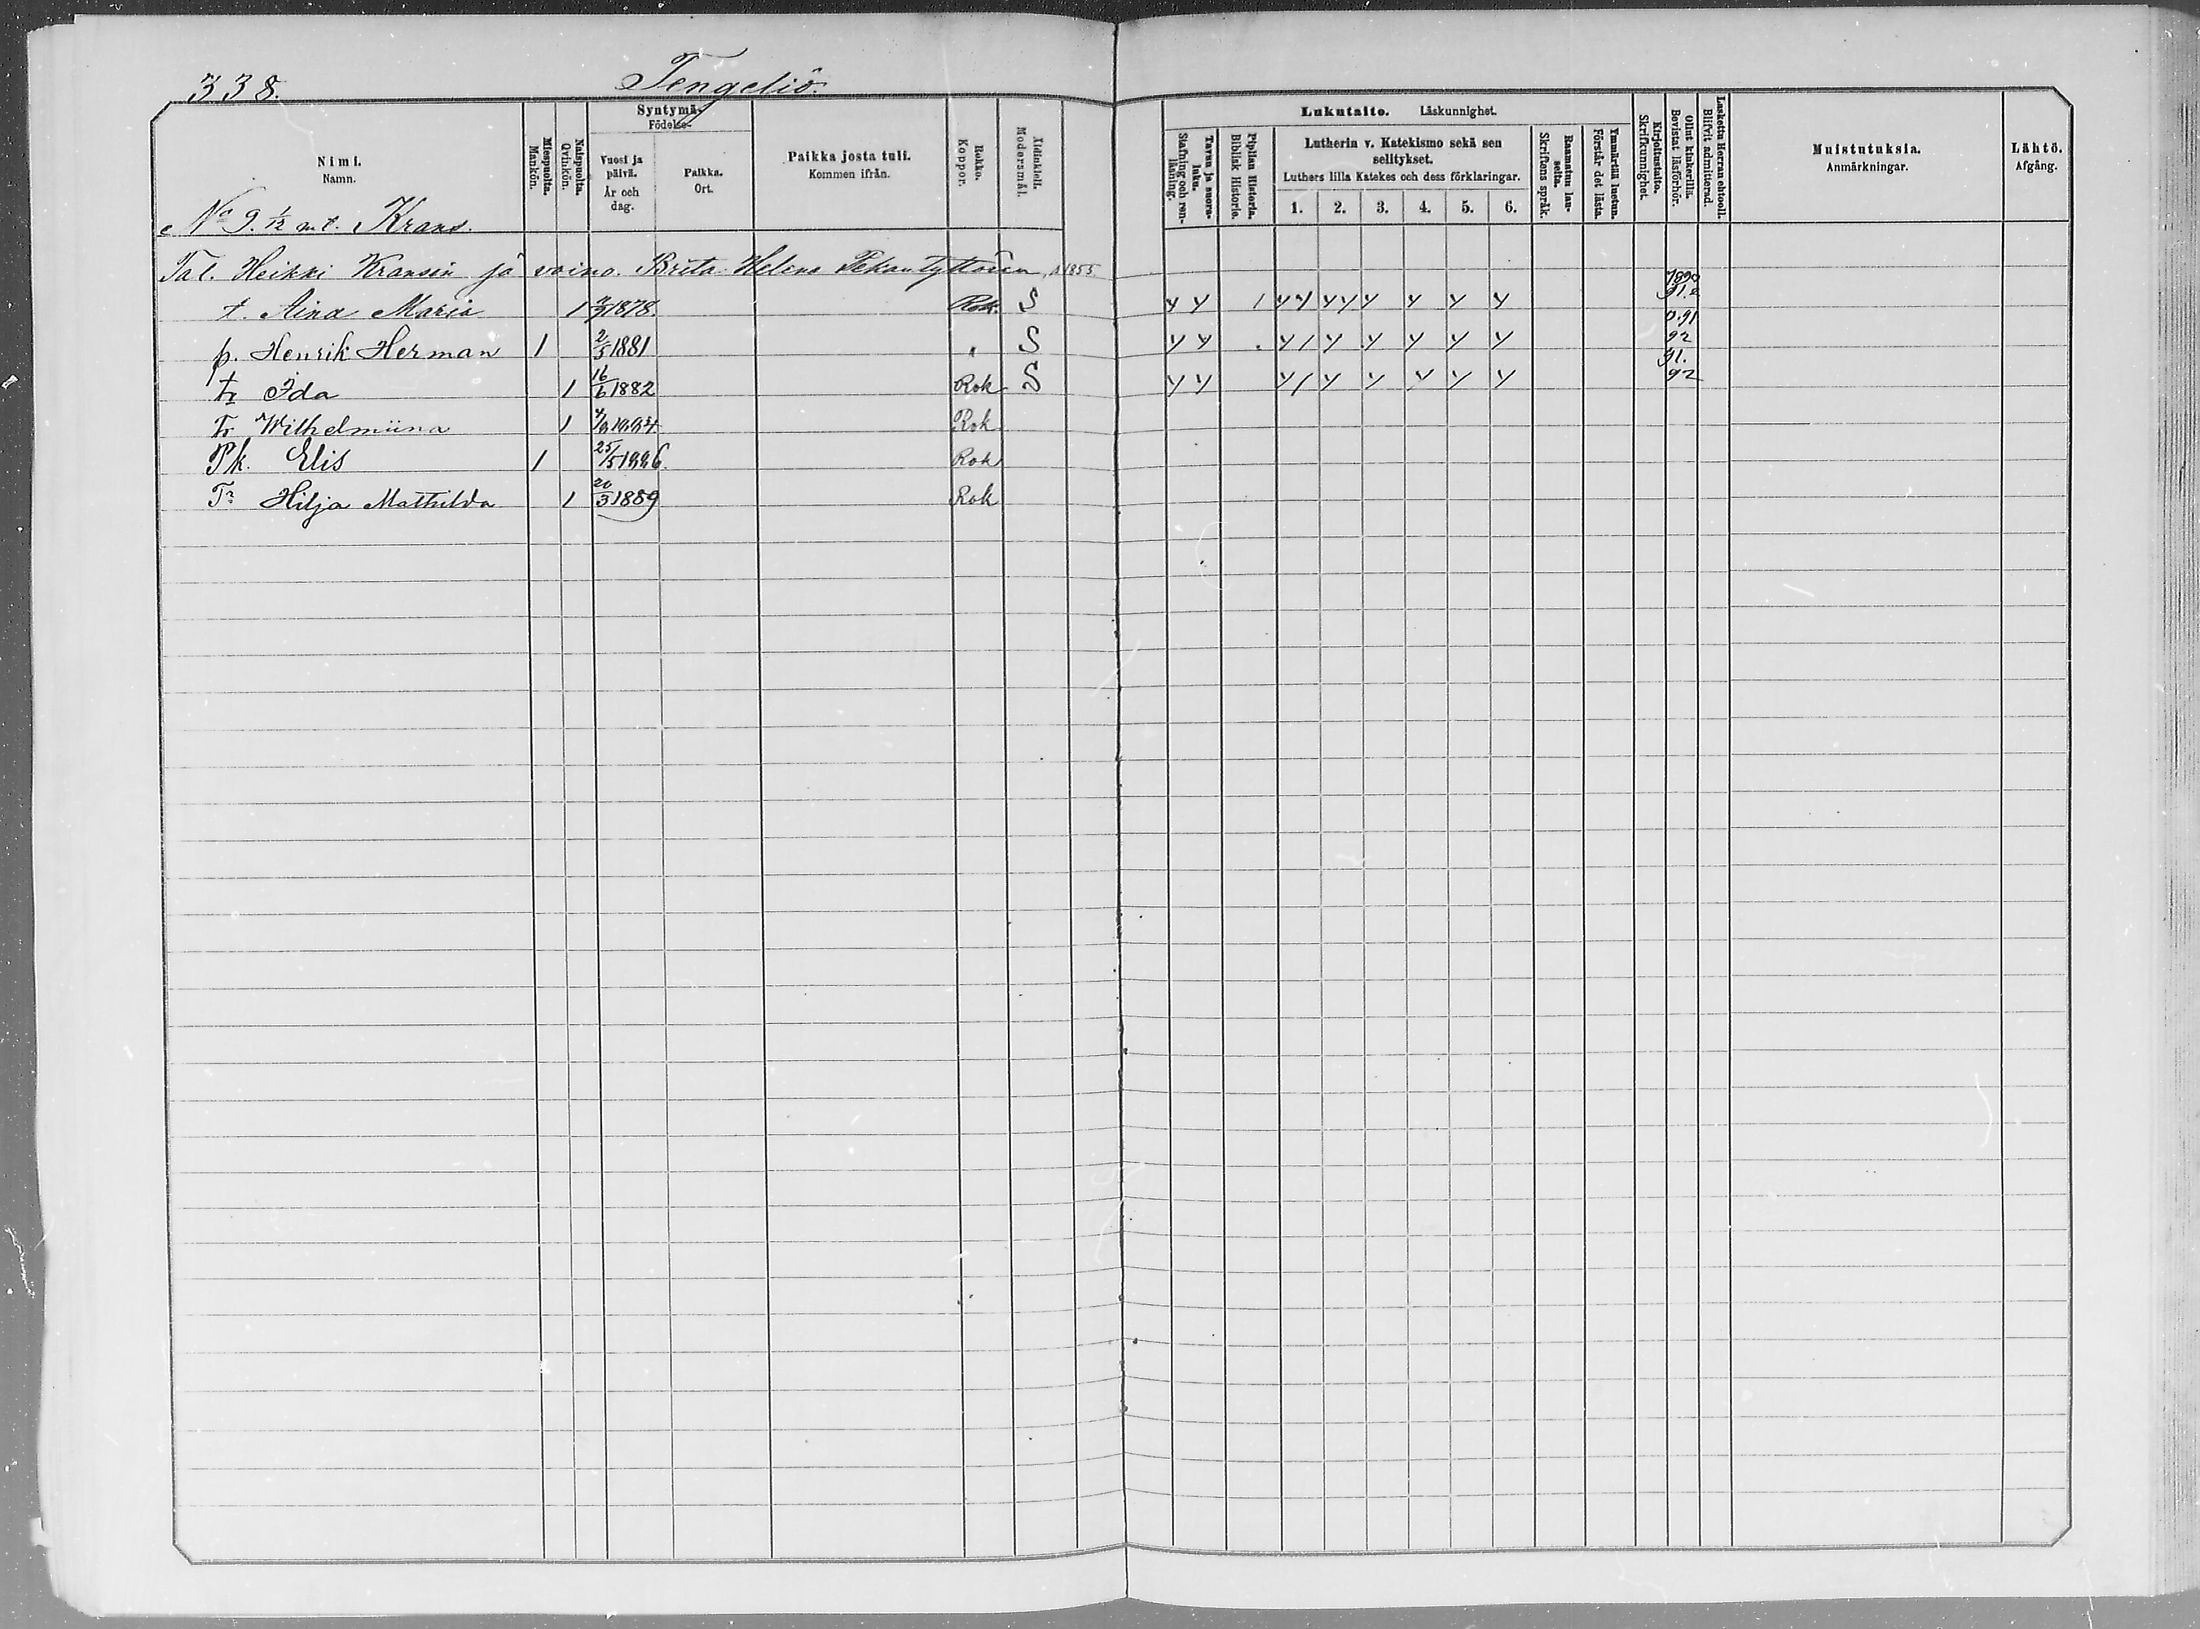 338. Tengeliö.
Nimi. Namn.
Miespuolta. Mankön.
Naispuolta. Qvinkön.
Syntymä- Födelse-
Vuosi ja päivä. År och dag.
Paikka. Ort.
Paikka josta tuli. Kommen ifrån.
Rokko. Koppor.
Äidinkieli. Modersmål.
Lukutaito. Läskunnighet.
Tavuu ja suora- luku. Stafning och ren- läsning.
Piplian Historia. Biblisk Historie.
Lutherin v. Katekismo sekä sen selitykset.
Luthers lilla Katekes och dess förklaringar.
1. 2. 3. 4. 5. 6.
Raamatun lau- seita. Skriftens språk.
Ymmärtää luetun. Förstår det lästa.
Kirjoitustaito. Skrifkunnighet.
Ollut kinkerillä. Bevistat läsförhör.
Laskettu Herran ehtooll. Blifvit admitterad.
Muistutuksia. Anmärkningar.
Lähtö. Afgång.
No 9. 1/12 mt. Krans.
Tal. Heikki Kransin ja vaimo. Brita Helena Pekantyttören 1855.
t. Aina Maria 1 1878. Rok. S 1890 91.2
p. Henrik Herman 1 2/5 1881 " S 0.91 92
tr Ida 1 16/6 1882 Rok S 91. 92
Tr Wilhelmiina 1 1884 Rok
Pk. Elis 1 25/5 1886. Rok
Tr Hilja Mathilda 1 20/3 1889 Rok